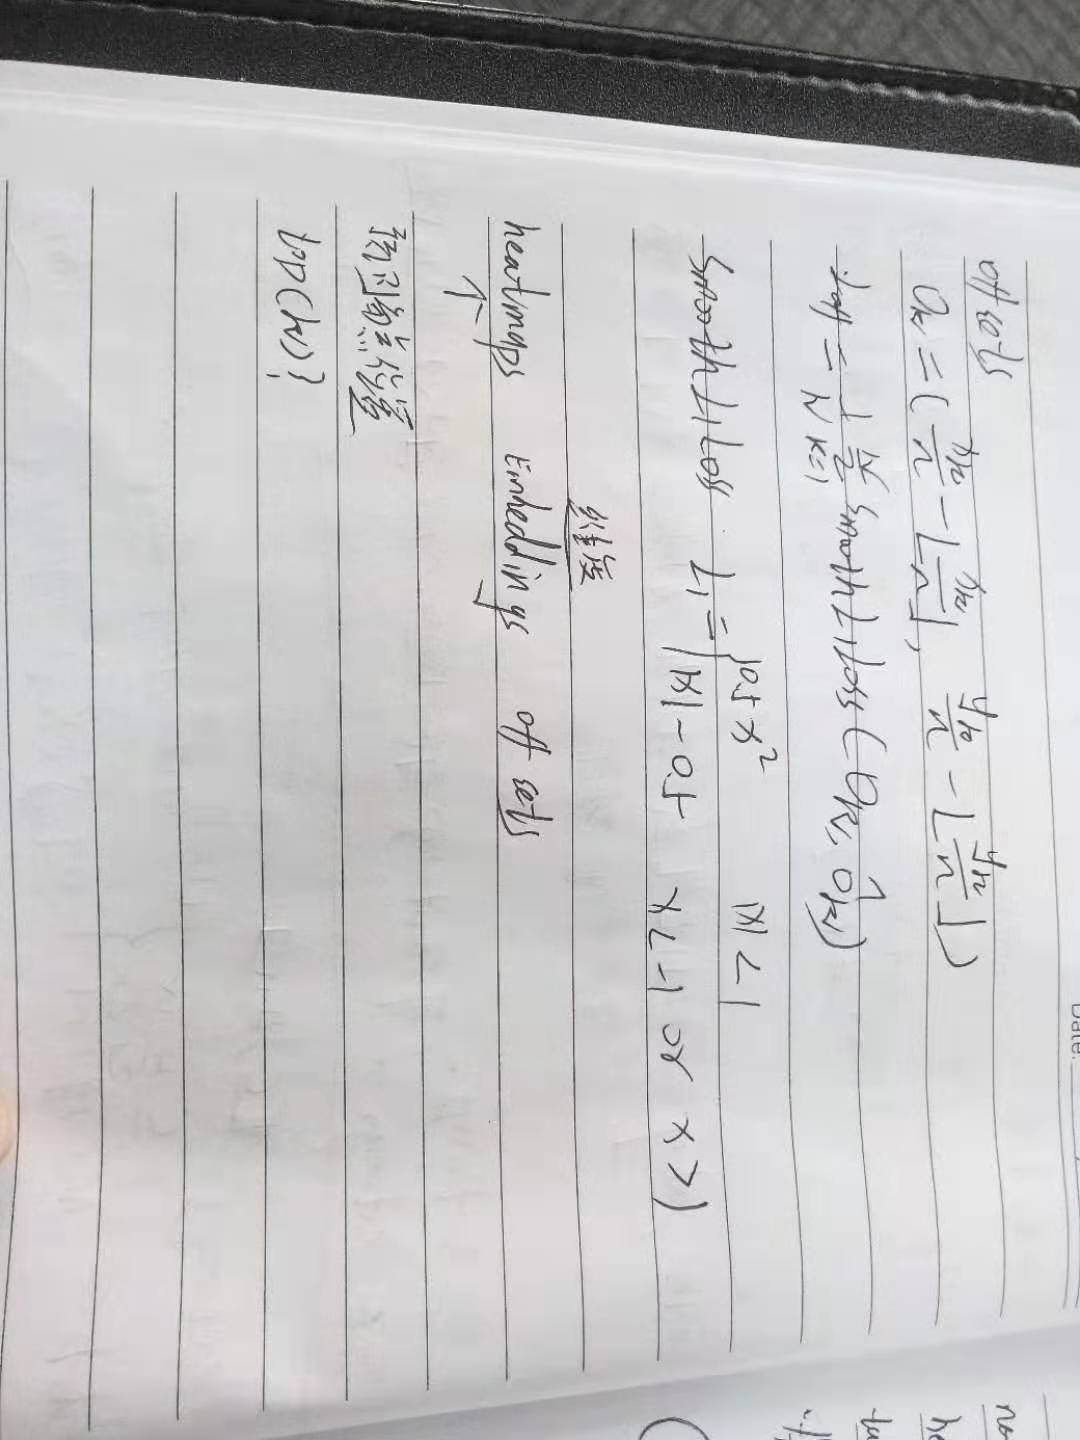 offsets
Ok = ( xk/n - ⌊xk/n⌋, yk/n - ⌊yk/n⌋ )
Loff = 1/N Σ k=1 N SmoothL1Loss ( Ok, Ôk )
SmoothL1Loss L1 = { 0.5 x² |x| < 1
|x| - 0.5 x < -1 or x > 1
维度
heatmaps Embeddings off sets
↑
预测角点位置
top(k)}
Date: